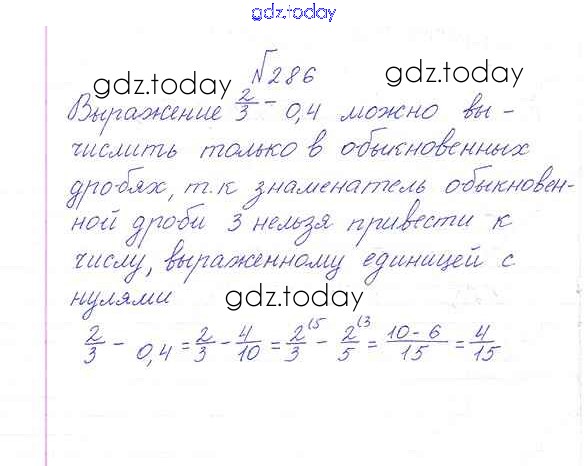 gdz.today
№286
gdz.today gdz.today
Выражение 2/3 - 0,4 можно вы-
числить только в обыкновенных
дробях, т.к знаменатель обыкновен-
ной дроби 3 нельзя привести к
числу, выраженному единицей с
нулями
gdz.today
2/3 - 0,4 = 2/3 - 4/10 = 2/3 (5 - 2/5 (3 = 10-6/15 = 4/15